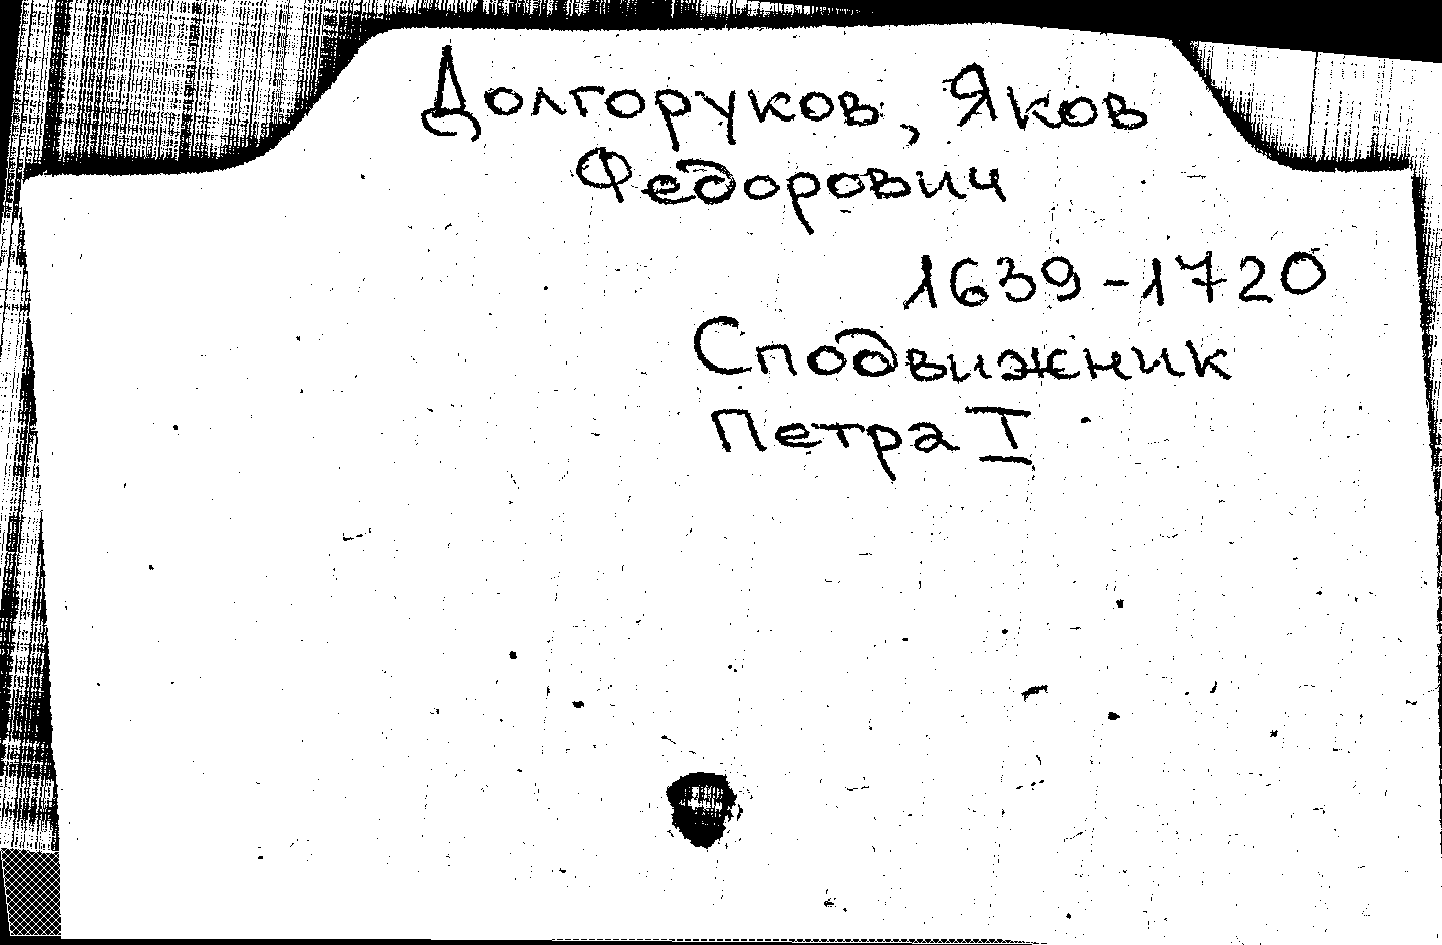 Долгоруков, Яков
Федорович
1639-1720
Сподвижник
Петра I